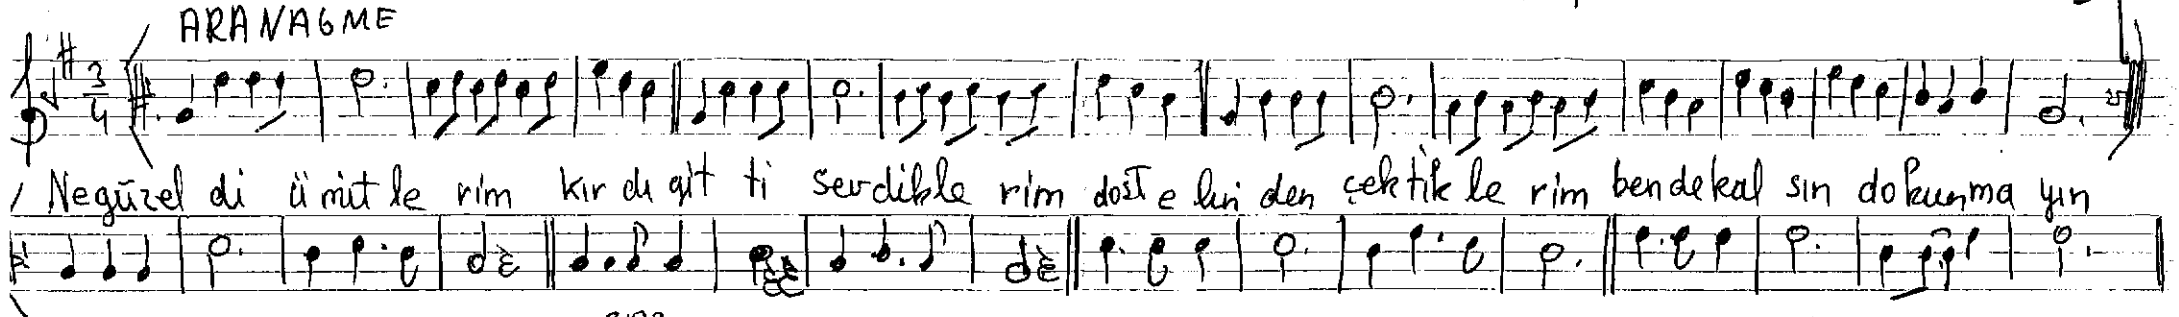 ARANAGME
3
4
Negüzel di ümit le rim kır dı git ti sevdikle rim dost e lin den çek tik le rim ben de kal sın dokunma yın